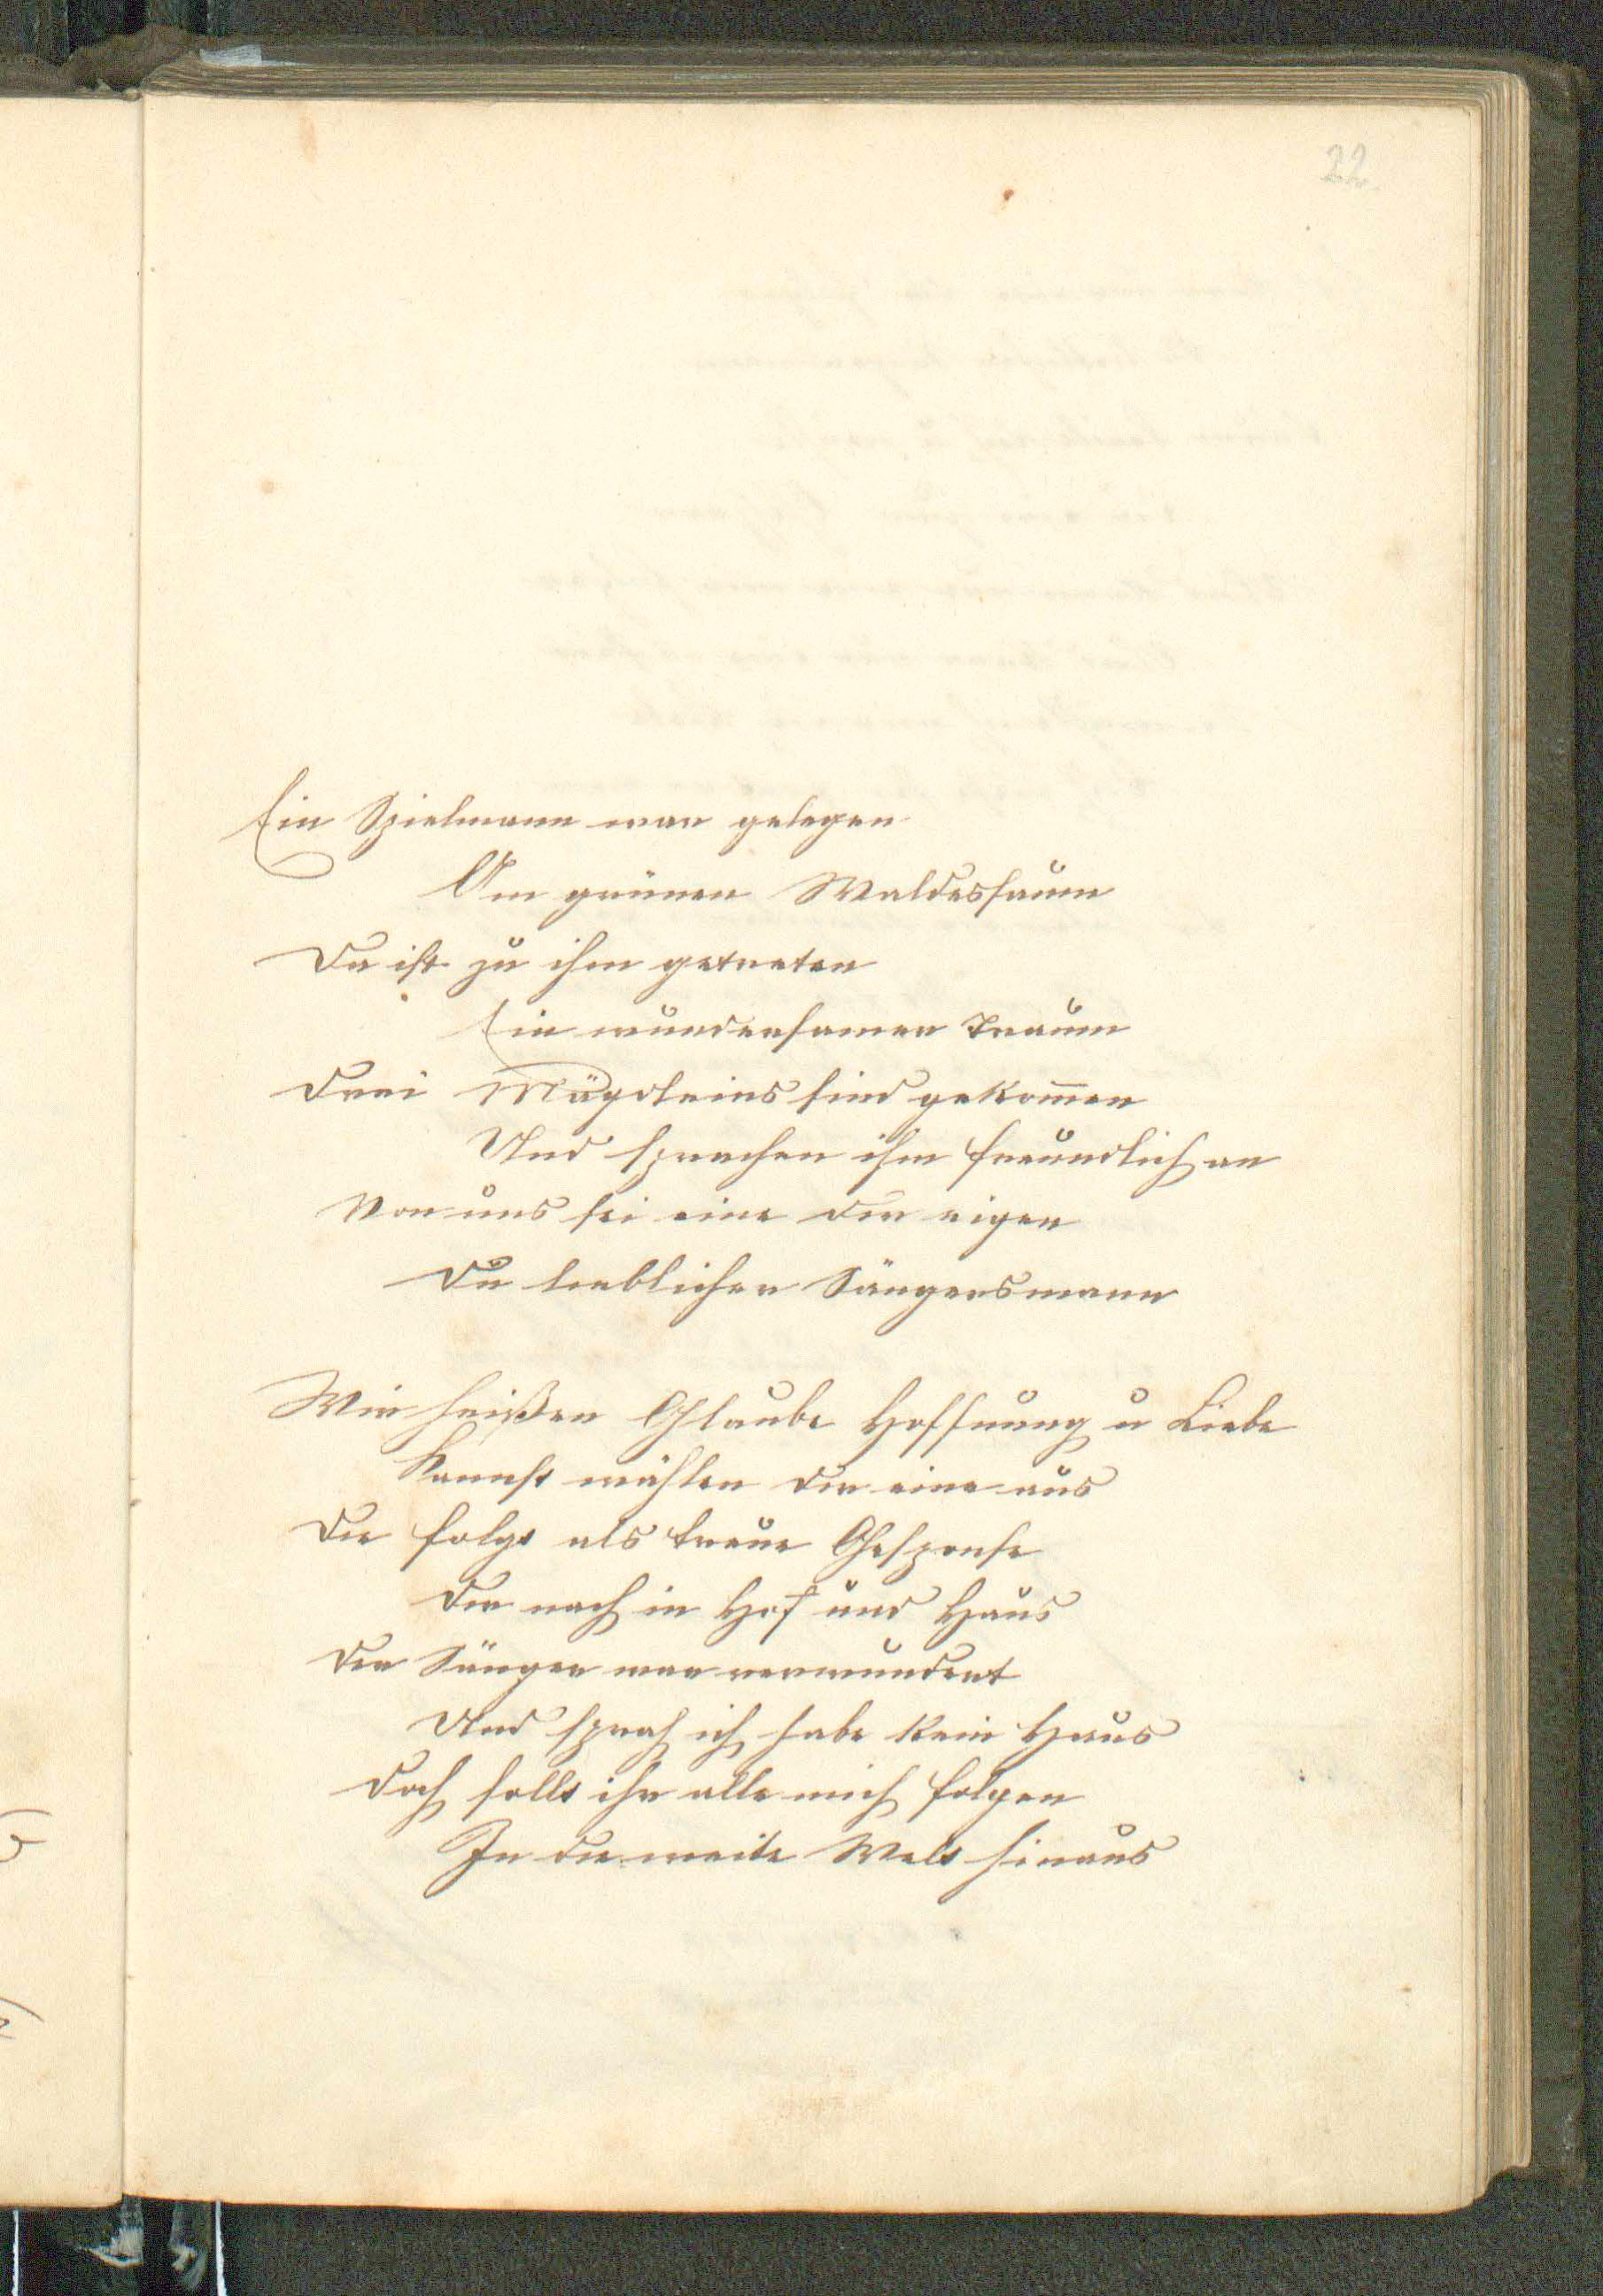 22
Ein Spielmann war gelegen
Am grünen Waldessaum
Da ist zu ihm getreten
Ein wundersamer Traum
Drei Mägdleins sind gekom̅en
Und sprachen ihm freundlich an
Von uns sei eine dir eigen
Du lieblicher Sängersmann
Wir heißen Glaube Hoffnung u Liebe
Kannst wählen dir eine aus
Die folgt als treue Gesponse
Dir nach in Hof und Haus
Der Sänger war verwundert
Und sprach ich habe kein Haus
Doch sollt ihr alle mich folgen
In die weite Welt hinaus